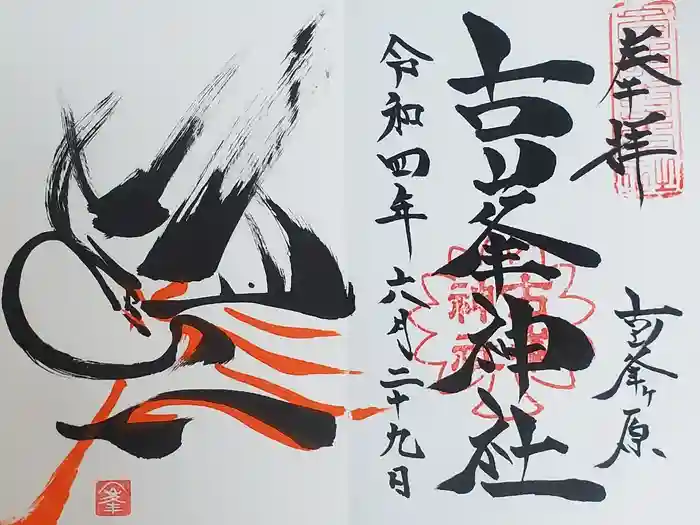 奉拝
古峯ヶ原
古峯神社
令和四年六月二十九日